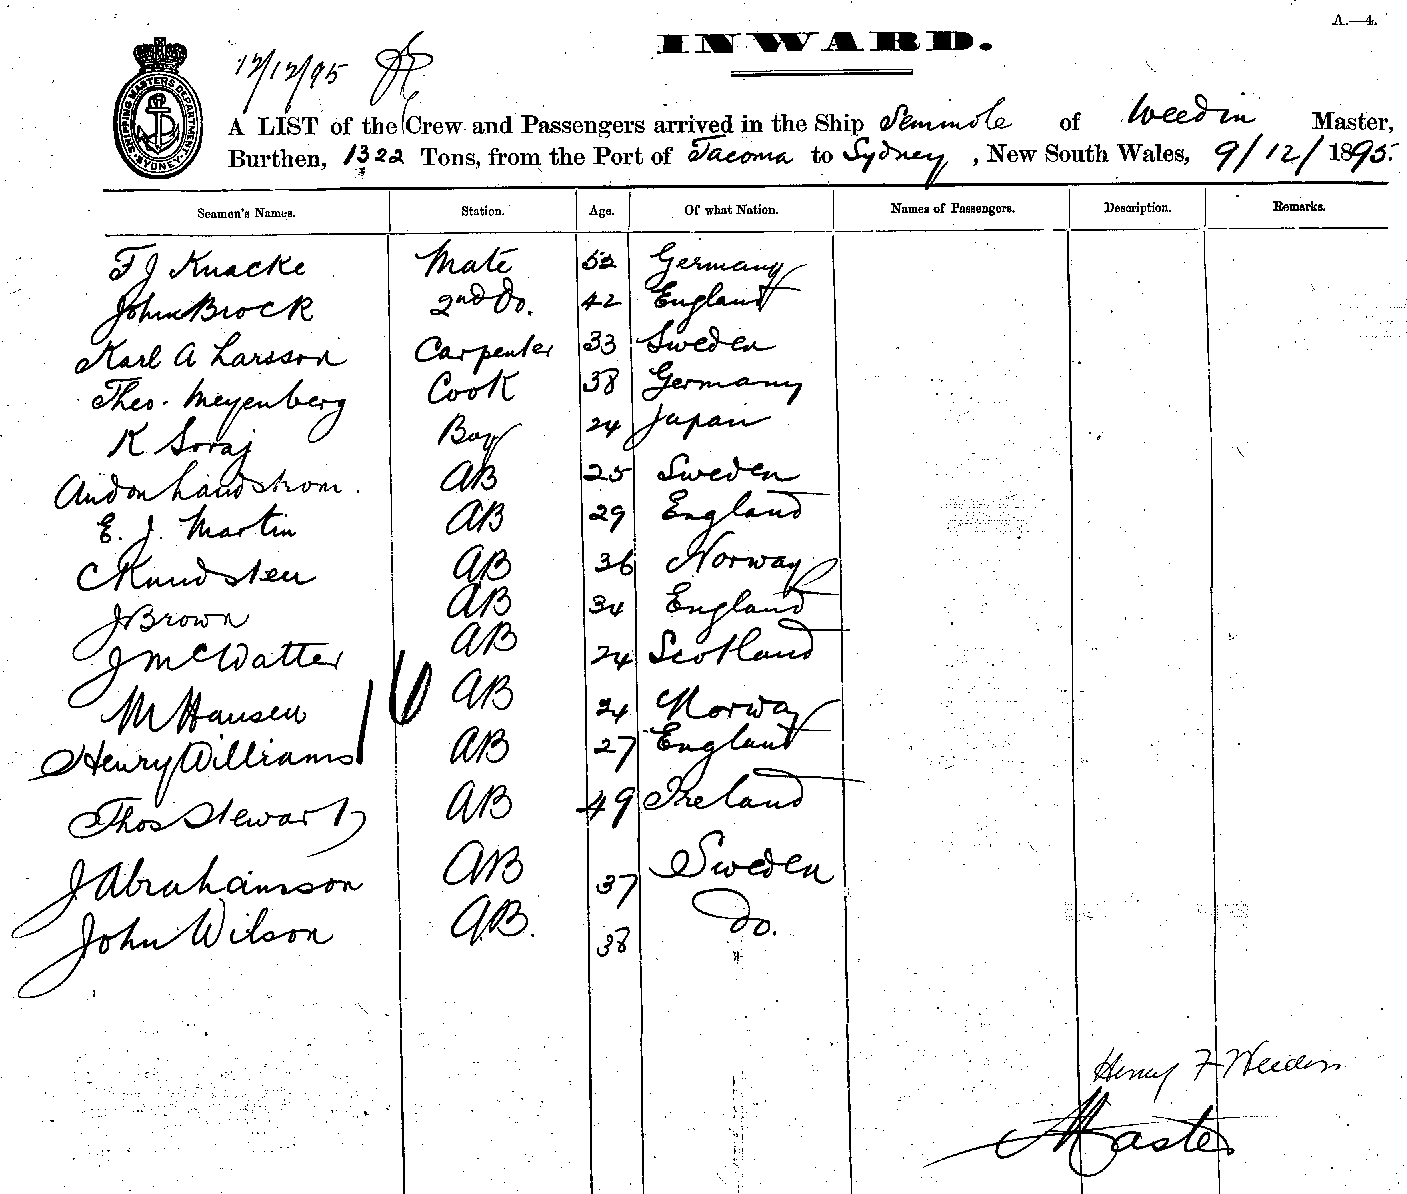 A.—4.
INWARD.
12/12/95
SHIPPING MASTERS DEPARTMENT SYDNEY
A LIST of the Crew and Passengers arrived in the Ship Seminole of Weedin Master,
Burthen, 1322 Tons, from the Port of Tacoma to Sydney, New South Wales, 9/12/1895.
Seamen's Names. Station. Age. Of what Nation. Names of Passengers. Description. Remarks.
F J Knacke Mate 52 Germany
John Brock 2nd Do. 42 England
Karl A Larsson Carpenter 33 Sweden
Theo. Meyenberg Cook 38 Germany
K Soraj Boy 24 Japan
Andon Landstrom. AB 25 Sweden
E. J. Martin AB 29 England
C Knudsten AB 36 Norway
J Brown AB 34 England
J McWatter AB 24 Scotland
M Hansen AB 24 Norway
Henry Williams AB 27 England
Thos Stewart AB 49 Ireland
J Abrahamsson AB 37 Sweden
John Wilson A.B. 38 Do.
Henry F Weeden
Master